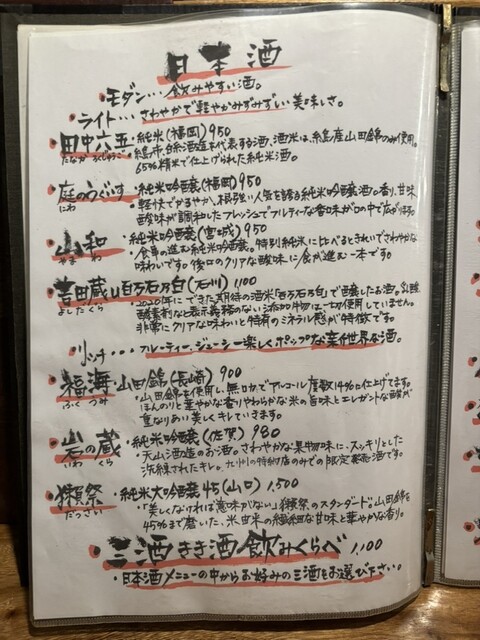 日本酒
モダン・・・飲みやすい酒。
ライト・・・さわやかで軽やかみずみずしい美味しさ。
田中六五・純米(福岡)950
たなか ろくじゅうご
・糸島市、白糸酒造を代表する酒、酒米は、糸島産山田錦のみ使用。
65%精米で仕上げられた純米酒。
庭のうぐいす・純米吟醸(福岡)950
にわ
・軽快でかろやか、根強い人気を誇る純米吟醸酒。香り、甘味
酸味が調和したフレッシュでフルーティな香味が口の中で広がります。
山和・純米吟醸(宮城)950
やま わ
・食事の進む純米吟醸。特別純米に比べるときれいでさわやかな
味わいです。後口のクリアな酸味に食が進む一本です。
吉田蔵u百万石乃白(石川)1,100
よしだくら
・2020年にできた期待の酒米「百万石乃白」で醸したお酒。乳酸
酵素剤など表示義務のない添加物は一切使用していません。
非常にクリアな味わいと特有のミネラル感が特徴です。
リッチ・・・フルーティー、ジューシー楽しくポップな新世界な酒。
福海・山田錦(長崎)900
ふく うみ
・山田錦を使用し、無ロカでアルコール度数14%に仕上げてます。
ほんのりと華やかな香りやわらかな米の旨味とエレガントな酸が
重なりあい美しくキレていきます。
岩の蔵・純米吟醸(佐賀)980
いわ くら
・天山酒造のお酒。さわやかな果物味に、スッキリとした
洗練されたキレ。九州の特約店のみでの限定販売酒です。
獺祭・純米大吟醸45(山口)1,500
だっさい
・「美しくなければ意味がない」獺祭のスタンダード。山田錦を
45%まで磨いた、米由来の繊細な甘味と華やかな香り。
三酒きき酒飲みくらべ 1,100
・日本酒メニューの中からお好みの三酒をお選び下さい。